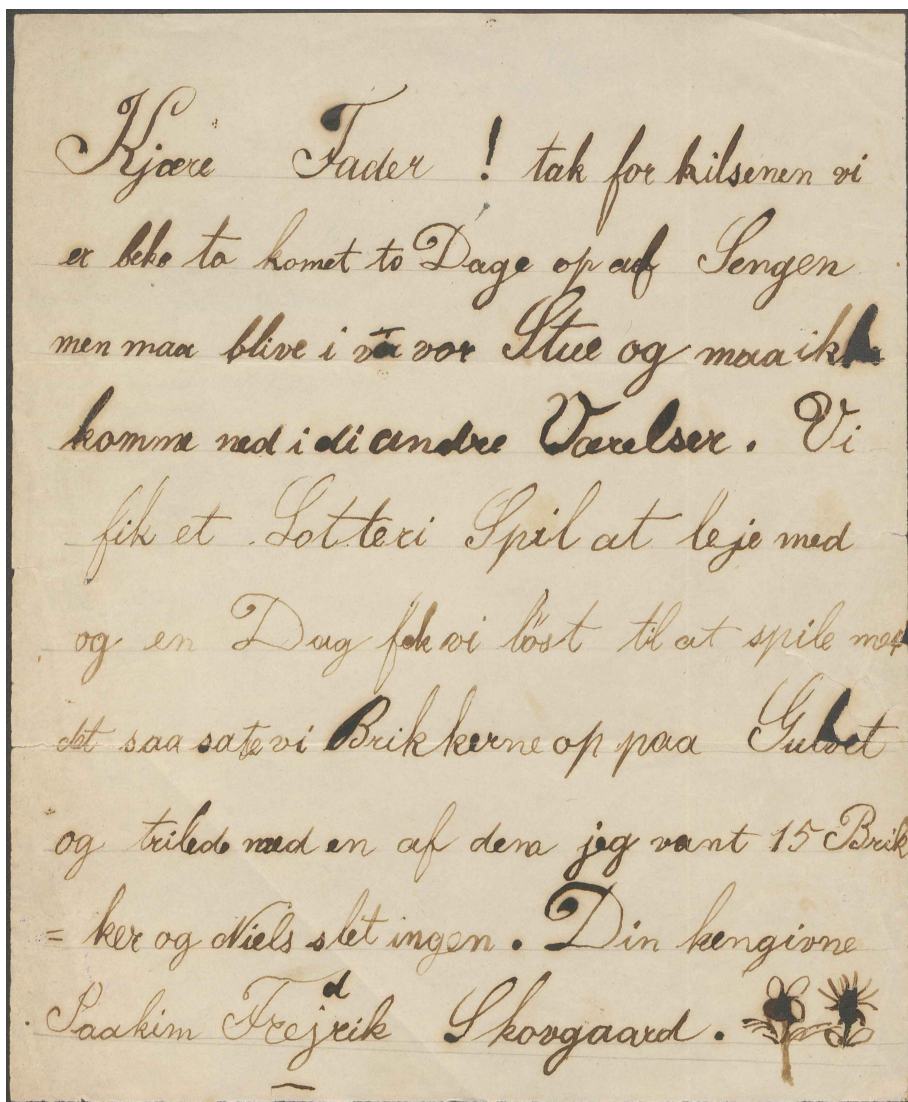 Kjære Fader ! tak for kilsenen vi
er beke to komet to Dage op af Sengen
men maa blive i vor Stue og maa ikke
komme ned i di andre Værelser. Vi
fik et Lotteri Spil at leje med
og en Dag fik vi löst til at spile med
det saa sate vi Brikkerne op paa Gulvet
og trilede med en af dem jeg vant 15 Brik
= ker og Niels slet ingen. Din hengivne
Joakim Fredrik Skovgaard.